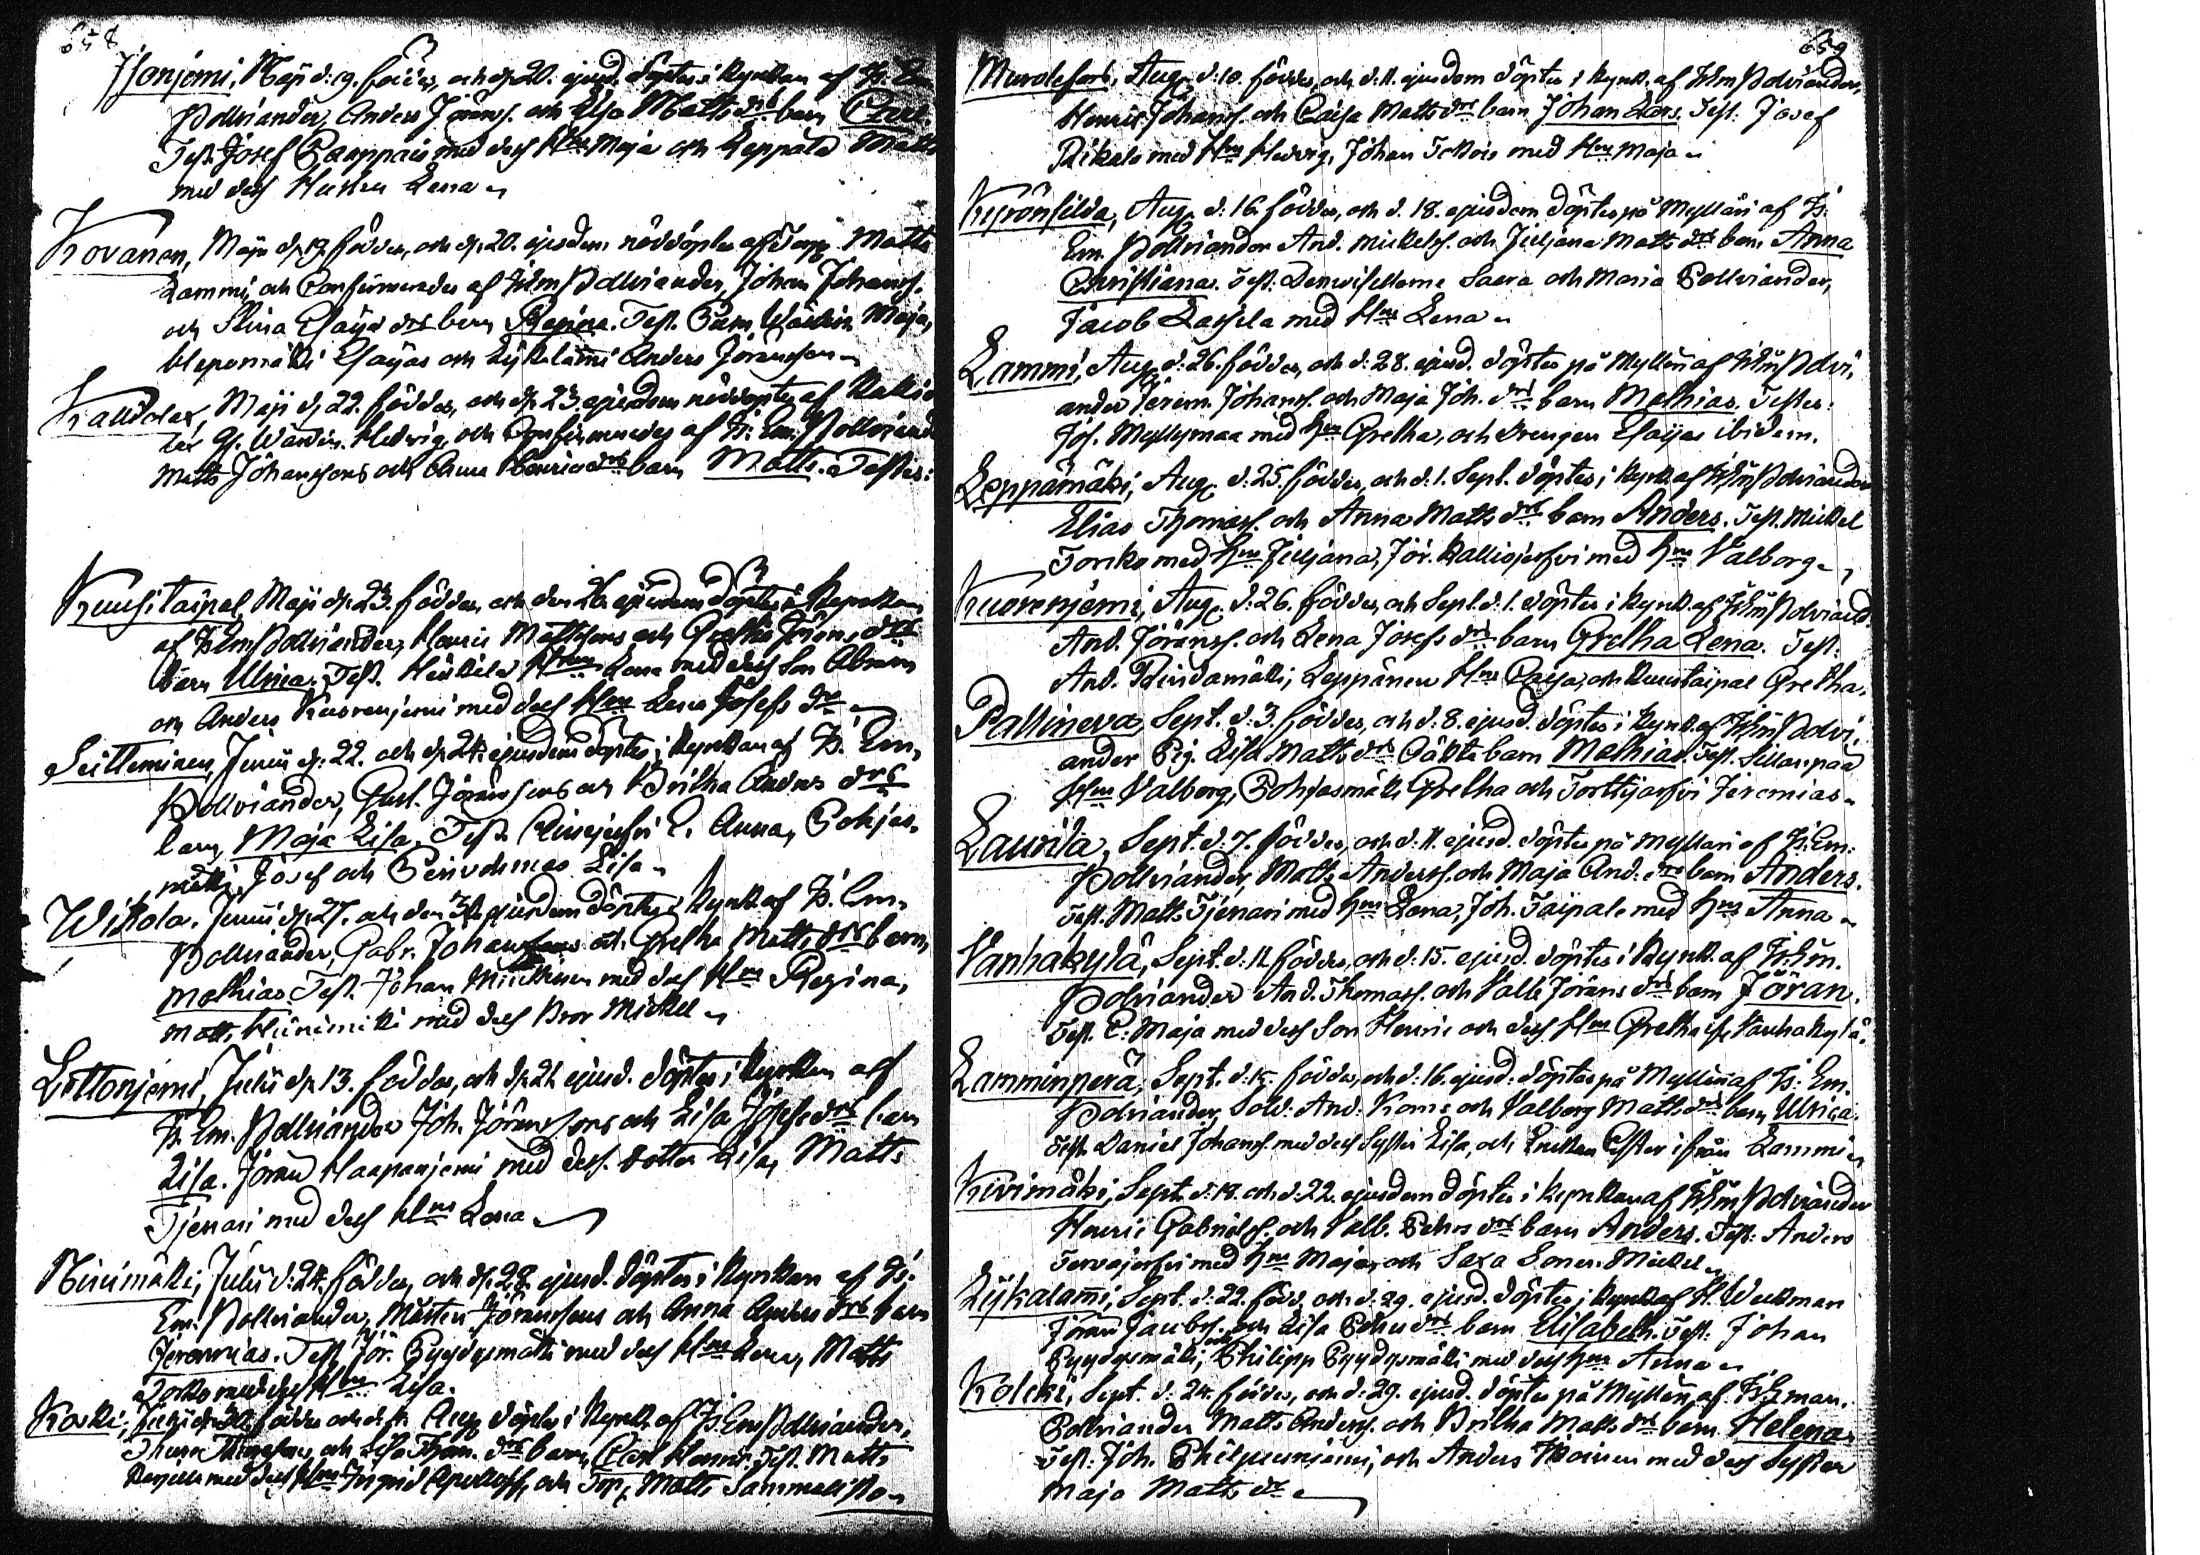 658
Isonjemi, Maji d: 19. föddes, och d. 20. ejusd. döptes i Kyrkan af H: Em
Pollviander, Anders Jörans. och Lisa Matts drs barn
Test. Josef med dess Hu Maja och Leppälä Matts
med dess Hustru Lena
Kovanen, Maji d. 19. föddes, och d. 20. ejusdem nöddöptes af Matts
Lammi, och Confirmerades af H: Em Pollviander, Johan Johans.
och Stina Esaiæ drs barn Regina. Test. Maja,
Esaias och Lykalami Anders Jöransson
Kalliolax, Maji d. 22. föddes, och d. 23. ejusdem nöddöptes af Kallio
lax Hedvig, och Confirmerades af H: Em. Pollviand
Matts Johanssons och Anna Henrics drs barn Matts. Testes:
Kuusitaipal, Maji d. 23. föddes, och den 26 ejusdem döptes i Kyrkan
af H: Em Pollviander, Henric Mattssons och Gretha Jörans drs
barn Ulrica. Test. Heikkilä Hus Lena med dess Son
och Anders Kuorenjemi med dess Hus Lena Josefs dr
Seitteminen, Junii d. 22. och d. 24. ejusdem döptes i Kyrkan af H: Em.
Pollviander, Gust. Jöranssons och Britha Anders drs
barn Maja Lisa. Test. E. Anna, Pohjas-
mäki Josef och Lisa
Wistola. Junii d. 27. och den ejusdem döptes i Kyrk. af H: Em.
Pollviander, Gabr. Johanssons och Gretha Matts drs barn,
Mathias. Test. Johan Minkinen med dess Hus Regina,
Matts med dess Bror Mickel
Littonjemi, Julii d. 13. föddes, och d. 21 ejusd. döptes i Kyrkan af
H: Em. Pollviander Joh. Jöranssons och Lisa Josefs drs barn
Lisa. Jöran Haapanjemi med dess dotter Lisa, Matts
Tjenari med dess Hus Lena
Ninimäki, Julii d: 24. föddes, och d. 28. ejusd. döptes i Kyrkan af H:
Em. Pollviander, Mårten Jöranssons och Anna Anders drs barn
Jeremias. Test. Jör. Pyydysmäki med dess Hus Lena, Matts
Torko med dess Hus Lisa.
Koski, Julii d. 30. föddes och d. Aug. döptes i Kyrk. af H: Em Pollviander,
och Lisa Thom. drs barn, Carl Henric. Test. Matts
med dess Hus Ingrid och Torp. Matts Sammalisto
659
Murolefors, Aug. d: 10. föddes, och d. 11. ejusdem döptes i Kyrk. af H: Em Pollviander,
Henric Johans. och Caisa Matts drs barn Johan Lars. Test: Josef
Rikala med Hus Hedvig, Johan med Hus Maja
Kyrönsilda, Aug. d: 16. föddes, och d. 18. ejusdem döptes på Mylläri af H:
Em. Pollviander And. Mickelss. och Juliana Matts drs barn Anna
Christiana. Test: Demoisellerna Saara och Maria Pollviander,
Jacob Lassila med Hus Lena
Lammi, Aug. d: 26. föddes, och d: 28. ejusd. döptes på Myllen af H: Em Polvi-
ander Jerem. Johans. och Maja Joh. drs barn Mathias. Testes:
Jos. Myllymaa med Hus Gretha, och drengen Esaijas ibidem.
Leppämäki, Aug. d: 25. föddes, och d. 1. Sept. döptes i Kyrk. af H: Em Polviander
Elias Thomass. och Anna Matts drs barn Anders. Test. Mickel
Torsko med Hus Juliana, Jör. Kalliojerfvi med Hus Valborg
Kuorenjemi, Aug. d: 26. föddes, och Sept. d: 1. döptes i Kyrk. af H: Em Polviand.
And. Jöranss. och Lena Josefs drs barn Gretha Lena. Test:
And. Leppänen Hus Caisa, och Kuusitaipal Gretha.
Pallineva, Sept. d: 3. föddes, och d. 8. ejusd. döptes i Kyrk. af H: Em Polvi-
ander Pig. Lisa Matts drs oäkta barn Mathias. Test. Sillanpää
Hus Valborg, Pohjasmäki Gretha och Torttijerfvi Jeremias
Laurila, Sept. d. 7. föddes, och d. 11. ejusd. döptes på Mylläri af H: Em:
Pollviander, Matts Anderss. och Maja And. drs barn Anders.
Test. Matts Tjenari med Hus Lena, Joh. Taipale med Hus Anna
Vanhakylä, Sept. d: 11. föddes, och d: 15. ejusd. döptes i Kyrk. af H: Em.
Polviander And. Thomass. och Valb. Jörans drs barn Jöran.
Test. E. Maja med dess Son Henric och dess Hus Gretha if. Vanhakylä.
Lamminperä, Sept. d: 15. föddes, och d: 16. ejusd: döptes på Myllen af H: Em.
Polviander, Sold. And. Koms och Valborg Matts drs barn Ulrica.
Test. Daniel Johans. med dess Syster Lisa, och Enckan Ester ifrån Lammi
Kivimäki, Sept. d: 18. och d: 22. ejusdem döptes i Kyrkan af H: Em Polviander
Henric Gabrielss. och Valb. Pehrs drs barn Anders. Test: Anders
Tervajerfvi med Hus Maja, och Saxa Sonen Mickel
Lykalami, Sept. d: 22. född. och d. 29. ejusd. döptes i Kyrk. af H. Weckman
Jöran Jacobs. och Lisa Pehrs drs barn Elisabeth. Test: Johan
Pyydysmäki, och Philipp Pyydysmäki med dess Hus Anna
Kolcki, Sept. d: 24. föddes, och d: 29. ejusd. döptes på Myllen af H: Eman.
Pollviander Matts Anderss. och Britha Matts drs barn Helena.
Test: Joh. och Anders med dess Syster
Maja Matts dr